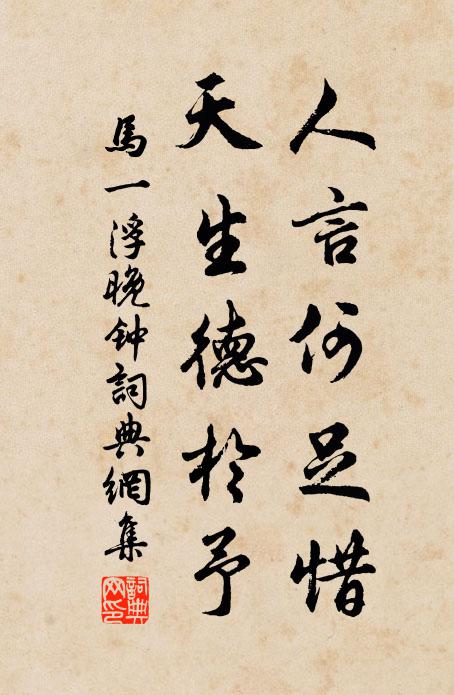 人言何足惜
天生德於予
馬一浮晚钟詞典網集
詞典网印